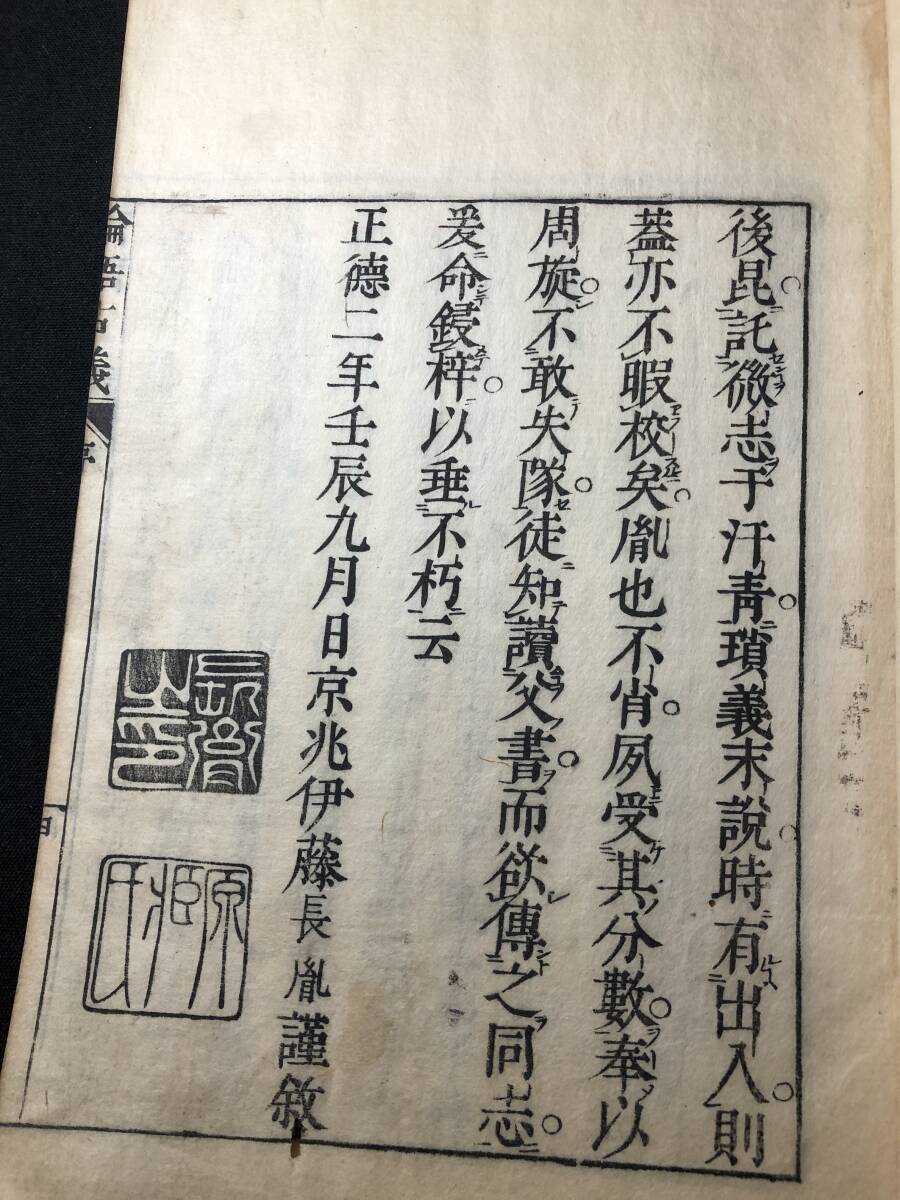 後昆託微志于汗靑瑣義末說時有出入則
蓋亦不暇校矣胤也不肖夙受其分數奉以
周旋不敢失隊徒知讀父書而欲傳之同志
爰命鋟梓以垂不朽云
正德二年壬辰九月日京兆伊藤長胤謹敘
論語古義
原臧氏